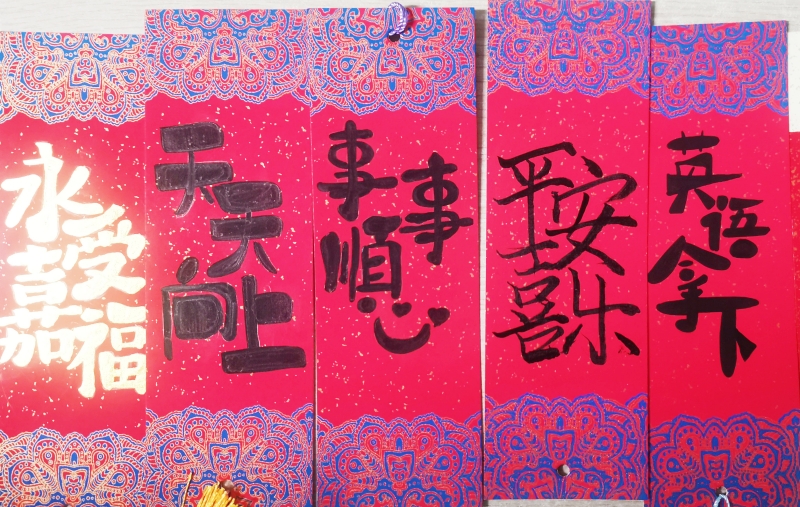 永受嘉福
天天向上
事事順心
平安喜乐
英语拿下